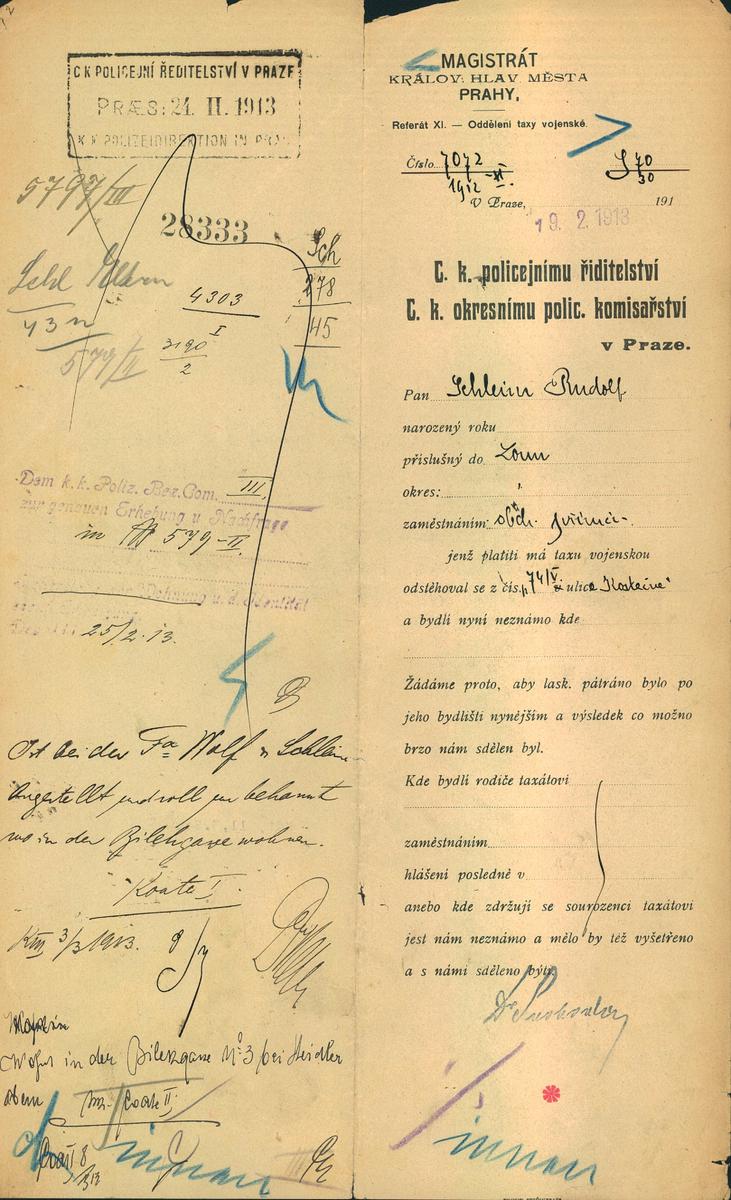 C. K. POLICEJNÍ ŘEDITELSTVÍ V PRAZE
PRÆS: 21. II. 1913
K. K. POLIZEIDIREKTION IN PRAG
5797/III
28333
Sch
4303
I
278
45
43
3190
2
579/II
Dem k. k. Poliz. Bez. Com. III.
zur genauen Erhebung u. Nachfrage
in N 579-II.
Wohnung u. d. Identität
25/2. 13.
Ist bei der Fa Wolf & Schleim
angestellt und soll
wo in der Bilekgasse wohnen.
Koate I.
3/3 1913.
Wohnt in der Bilekgasse No 3 bei Heidler
oben
Koate II
MAGISTRÁT
KRÁLOV. HLAV. MĚSTA
PRAHY,
Referát XI. — Oddělení taxy vojenské.
Číslo 7072
1912 XI.
570
30
V Praze, 191
19. 2. 1913
C. k. policejnímu řiditelství
C. k. okresnímu polic. komisařství
v Praze.
Pan Schleim Rudolf
narozený roku
příslušný do Loun
okres:
zaměstnáním: obch.
jenž platiti má taxu vojenskou
odstěhoval se z čís. p. 74/V z ulice
a bydlí nyní neznámo kde
Žádáme proto, aby lask. pátráno bylo po
jeho bydlišti nynějším a výsledek co možno
brzo nám sdělen byl.
Kde bydlí rodiče taxátovi
zaměstnáním
hlášeni posledně v
anebo kde zdržují se sourozenci taxátovi
jest nám neznámo a mělo by též vyšetřeno
a s námi sděleno býti.
Dr. Svoboda